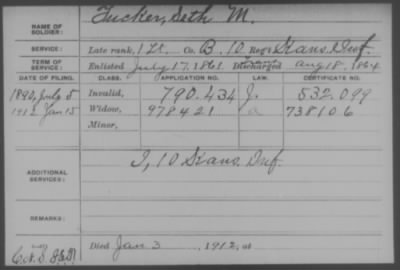 NAME OF SOLDIER: Tucker, Seth M.
SERVICE: Late rank, 1 Lt. Co. B, 10 Reg't Kans. Inf.
TERM OF SERVICE: Enlisted July 17, 1861 Discharged Aug 18, 1864
DATE OF FILING. CLASS. APPLICATION NO. LAW. CERTIFICATE NO.
1890, July 5 Invalid, 790.434 J. 532.099
1912 Jan 15 Widow, 978421 a 738106
Minor,
ADDITIONAL SERVICES: I, 10 Kans. Inf.
REMARKS:
Died Jan 3, 1912, at